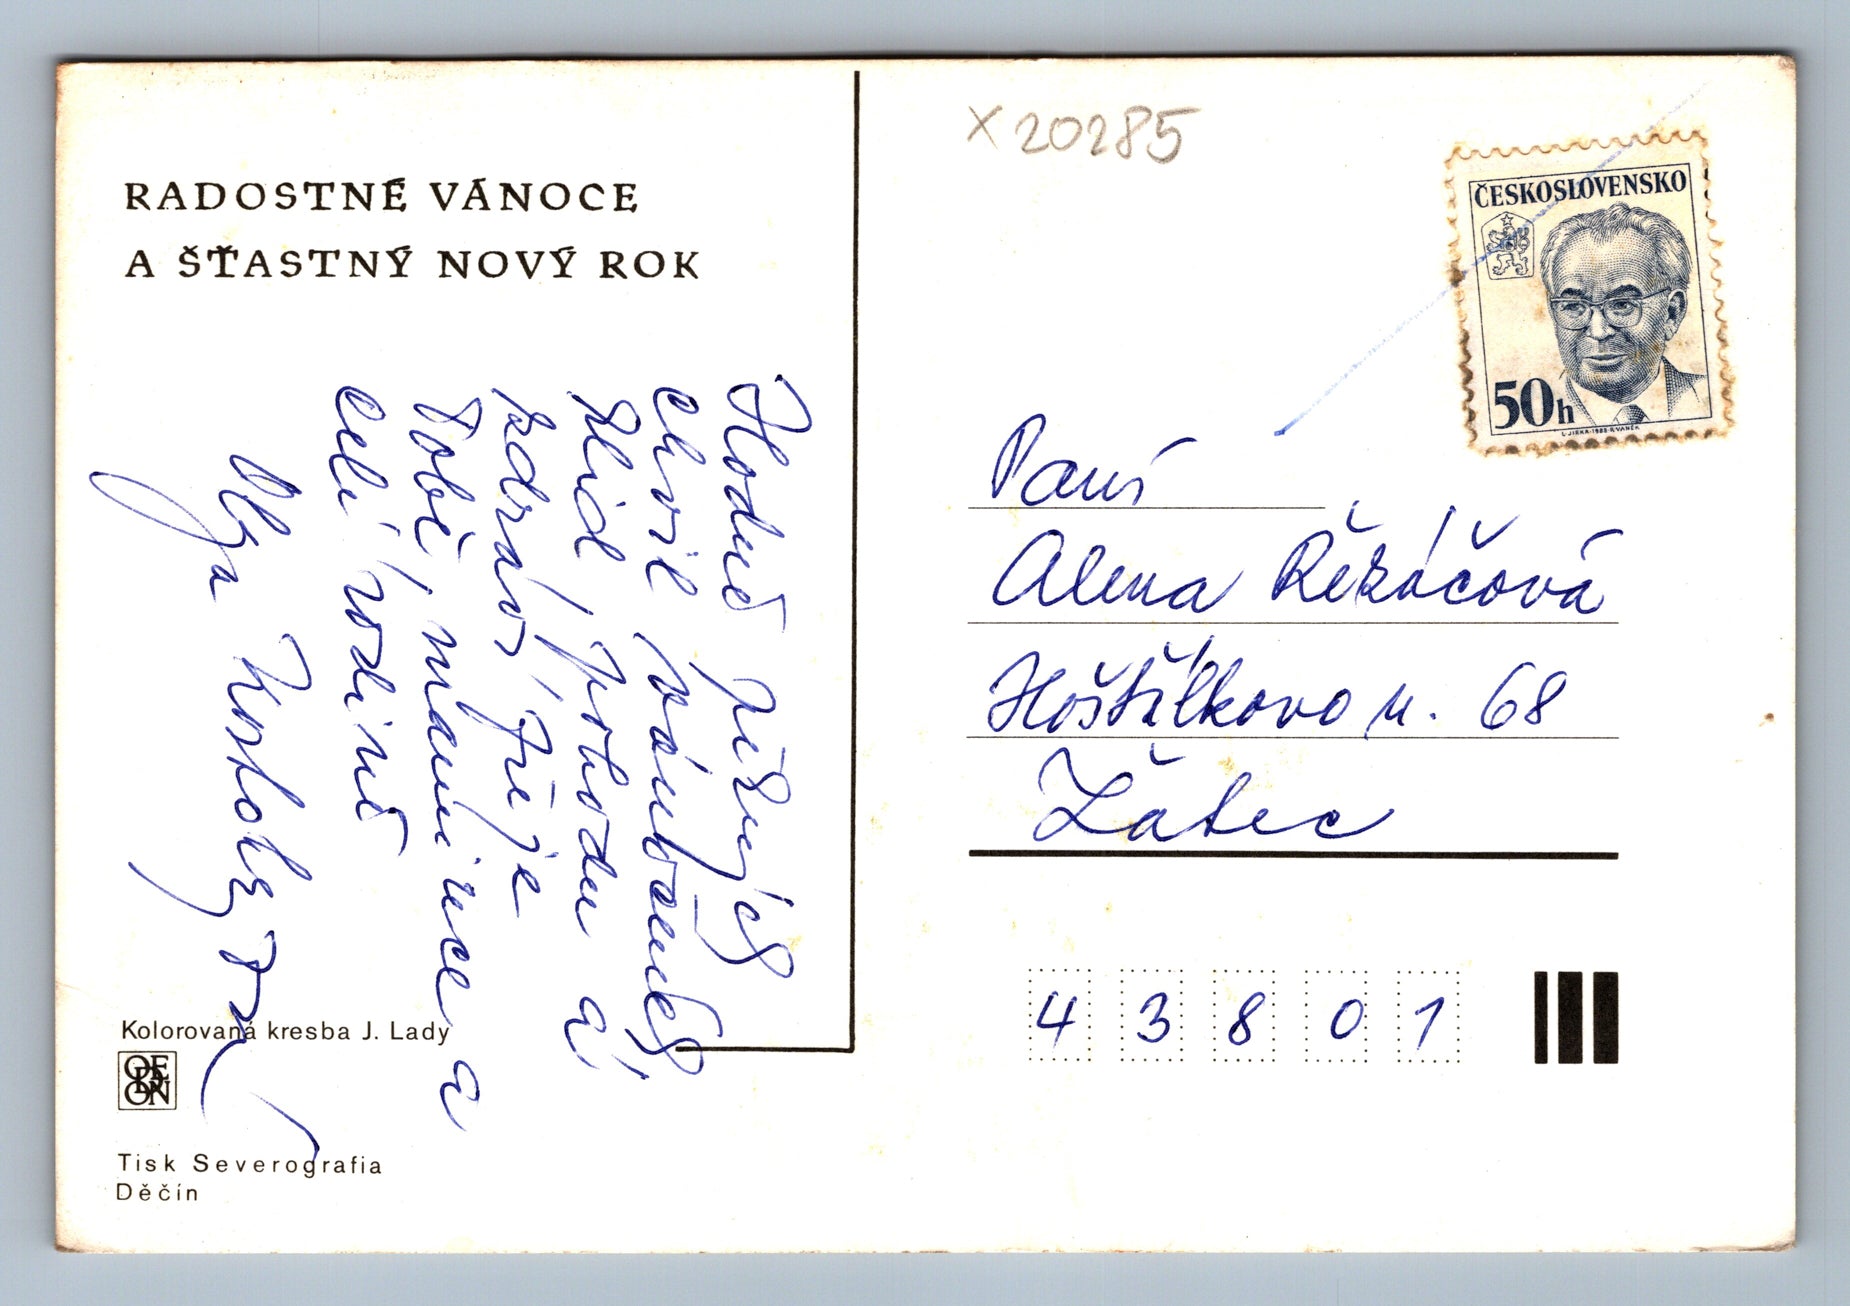 RADOSTNÉ VÁNOCE
A ŠŤASTNÝ NOVÝ ROK
Hodně pěkných
chvil vánočních
klid, pohodu a
zdraví přeje
Tobě, mamince a
celé rodině
Olga
Kolorovaná kresba J. Lady
ODEON
Tisk Severografia
Děčín
x 20285
ČESKOSLOVENSKO
50h
L.JIRKA-1983-R.VANĚK
Paní
Alena Řezáčová
Hošťálkovo n. 68
Žatec
43801